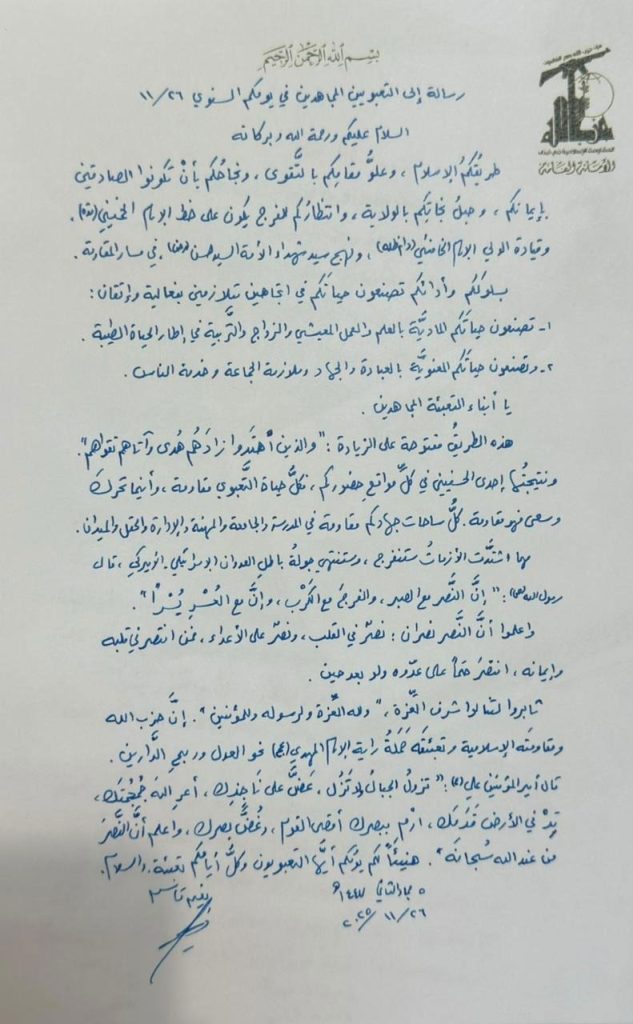 بسم الله الرحمن الرحيم
رسالة إلى التعبويين المجاهدين في يومكم السنوي ١١/٢٦
السلام عليكم ورحمة الله وبركاته
الأمانة العامة
طريقُكم الإسلام، وعلوُّ مقامِكم بالتَّقوى، ونجاحُكم بأنْ تكونوا الصادقين
بإيمانكم، وحبلُ نجاتِكم بالولاية، وانتظارُكم للفرج يكون على خط الإمام الخميني (قده).
وقيادة الولي الإمام الخامنئي (دام ظله)، ونهج سيد شهداء الأمة السيد حسن (رض)، في مسار المقاومة.
بسلوككم وأدائكم تصنعون حياتَكم في اتجاهين متلازمين بفعالية وإتقان:
١- تصنعون حياتَكم الماديَّة بالعلم والعمل المعيشي والزواج والتَّربية في إطار الحياة الطيبة.
٢- وتصنعون حياتَكم المعنويَّة بالعبادة والجهاد وملازمة الجماعة وخدمة الناس.
يا أبناء التعبئة المجاهدين.
هذه الطريقُ مفتوحة على الزيادة: "والذين اهتَدَوا زادَهُم هُدى وآتاهم تقواهم".
ونتيجتُها إحدى الحسنيين في كلِّ مواقع حضوركم، فكلُّ حياة التَّعبوي مقاومة، وأينما تحرك
وسعى فهو مقاومة. كلُّ ساحات جهادكم مقاومة في المدرسة والجامعة والمهنة والإدارة والحقل والميدان.
مهما اشتدَّت الأزماتُ ستنفرج، وستنتهي جولةُ باطلِ العدوان الإسرائيلي-الأميركي، قال
رسول الله (ص): "إنَّ النَّصر مع الصبر، والفرجَ مع الكَرْب، وإنَّ مع العُسْرِ يُسْراً".
واعلموا أنَّ النَّصر نصران: نصرٌ في القلب، ونصرٌ على الأعداء، فمن انتصر في قلبه
وإيمانه، انتصرَ حتماً على عدّوه ولو بعد حين.
ثابروا لتنالوا شرف العِّزة، "ولله العِّزة ولرسوله وللمؤمنين". إنَّ حزب الله
ومقاومتَه الإسلامية وتعبئتَه حَمَلَةُ راية الإمام المهدي (عج) نحو العدل وربحِ الدَّارين.
قال أمير المؤمنين علي (ع): "تزولُ الجبالُ ولا تَزُل، عَضَّ على نَاجِذِك، أعرِ اللهَ جُمْجُمَتَك،
تِدْ في الأرض قَدَمَك، ارْمِ ببصرك أقصى القوم، وغُضَّ بصرك، واعلم أنَّ النَّصْرَ
من عند الله سُبحانَه". هنيئاً لكم يومُكم أيُّها التعبويون وكلُّ أيامكم تعبئة. والسلام.
٥ جماد الثاني ١٤٤٧هـ
نعيم قاسم
٢٠٢٥/١١/٢٦